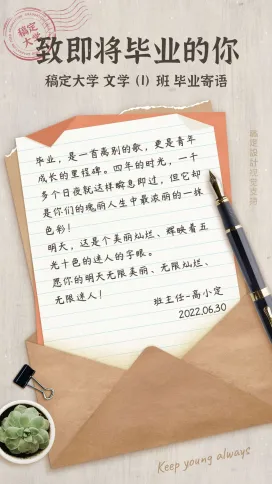 稿定
大学
致即将毕业的你
稿定大学 文学（1）班 毕业寄语
毕业，是一首离别的歌，更是青年
成长的里程碑。四年的时光，一千
多个日夜就这样瞬息即过，但它却
是你们的瑰丽人生中最浓丽的一抹
色彩！
明天，这是个美丽灿烂、辉映着五
光十色的迷人的字眼。
愿你的明天无限美丽、无限灿烂、
无限迷人！
班主任-高小定
2022.06.30
Keep young always